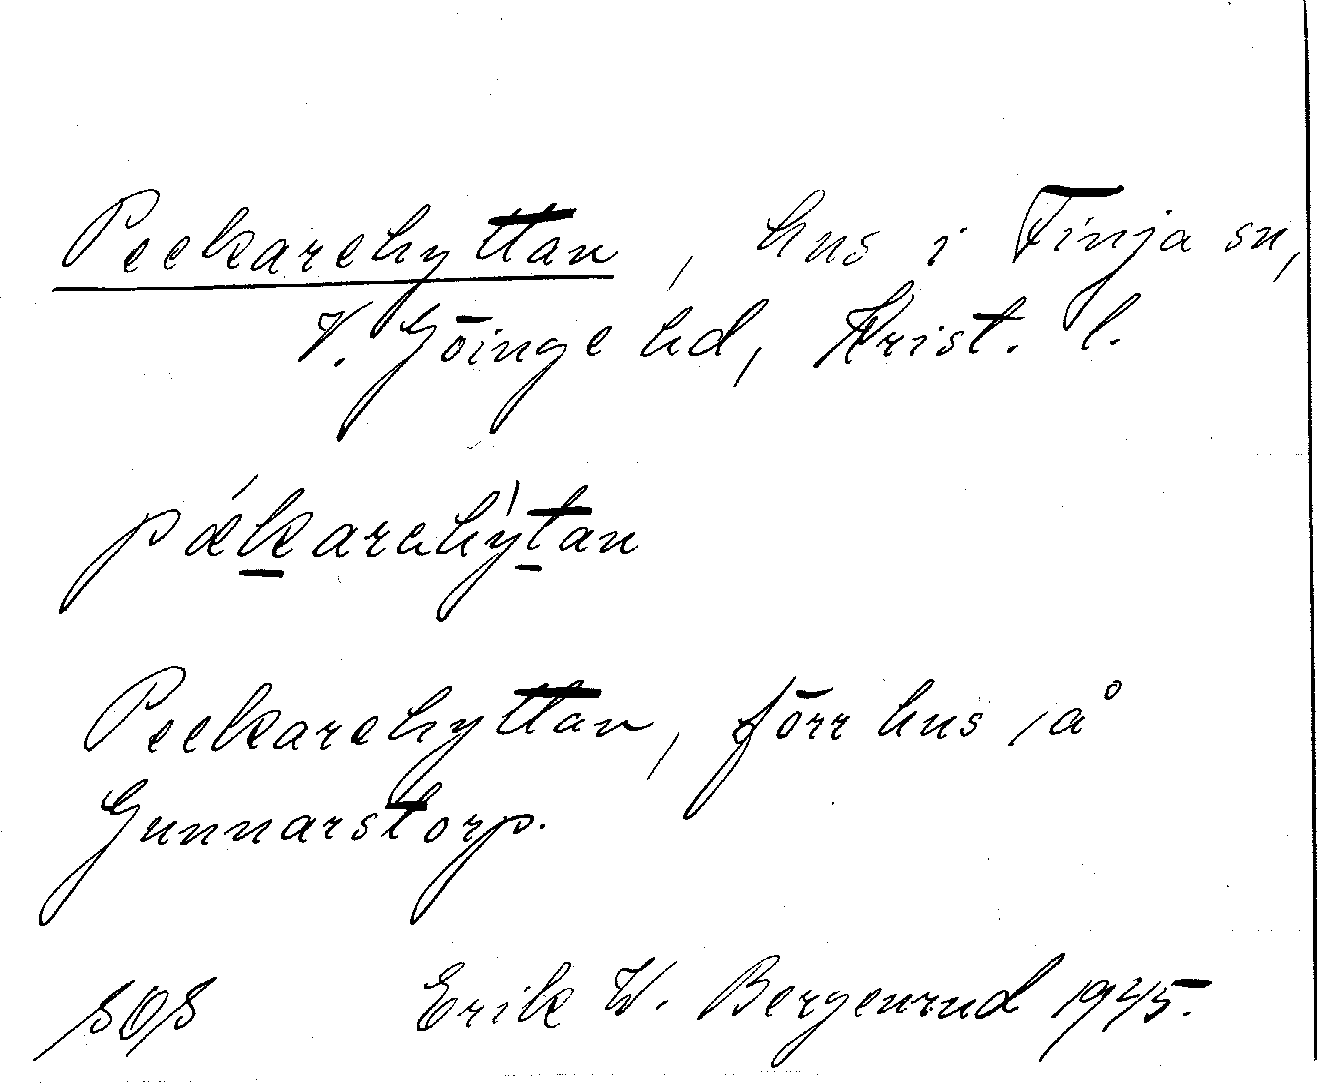 Peckarehyttan, hus i Finja sn,
V. Göinge hd, Krist. l.
pǽkarehỳtan
Peckarehyttan, förr hus, å
Gunnarstorp.
SOS Erik W. Bergenrud 1945.